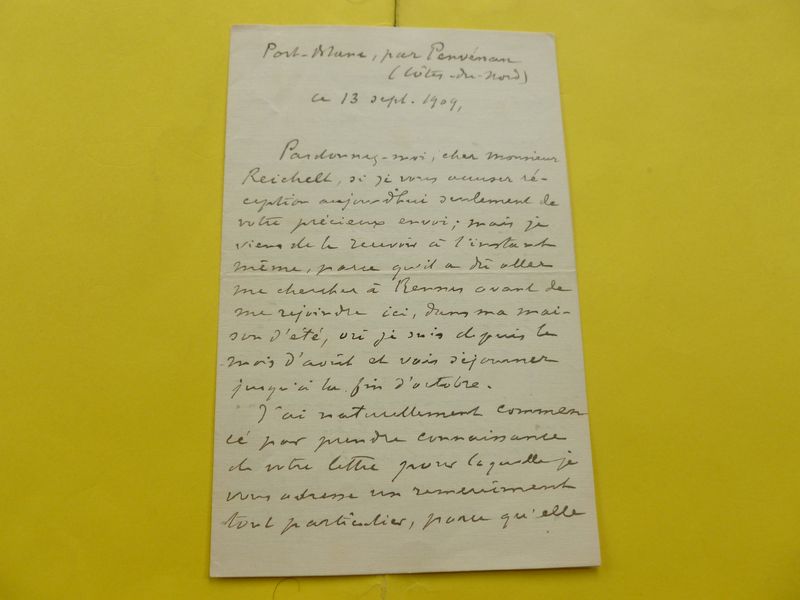 Port-Blanc, par Penvénan
(Côtes-du-Nord)
ce 13 sept. 1909,
Pardonnez-moi, cher monsieur
Reichelt, si je vous accuser ré-
ception aujourd'hui seulement de
votre précieux envoi; mais je
viens de le recevoir à l'instant
même, parce qu'il a dû aller
me chercher à Rennes avant de
me rejoindre ici, dans ma mai-
son d'été, où je suis depuis le
mois d'août et vais séjourner
jusqu'à la fin d'octobre.
J'ai naturellement commen
cé par prendre connaissance
de votre lettre pour laquelle je
vous adresse un remerciement
tout particulier, parce qu'elle